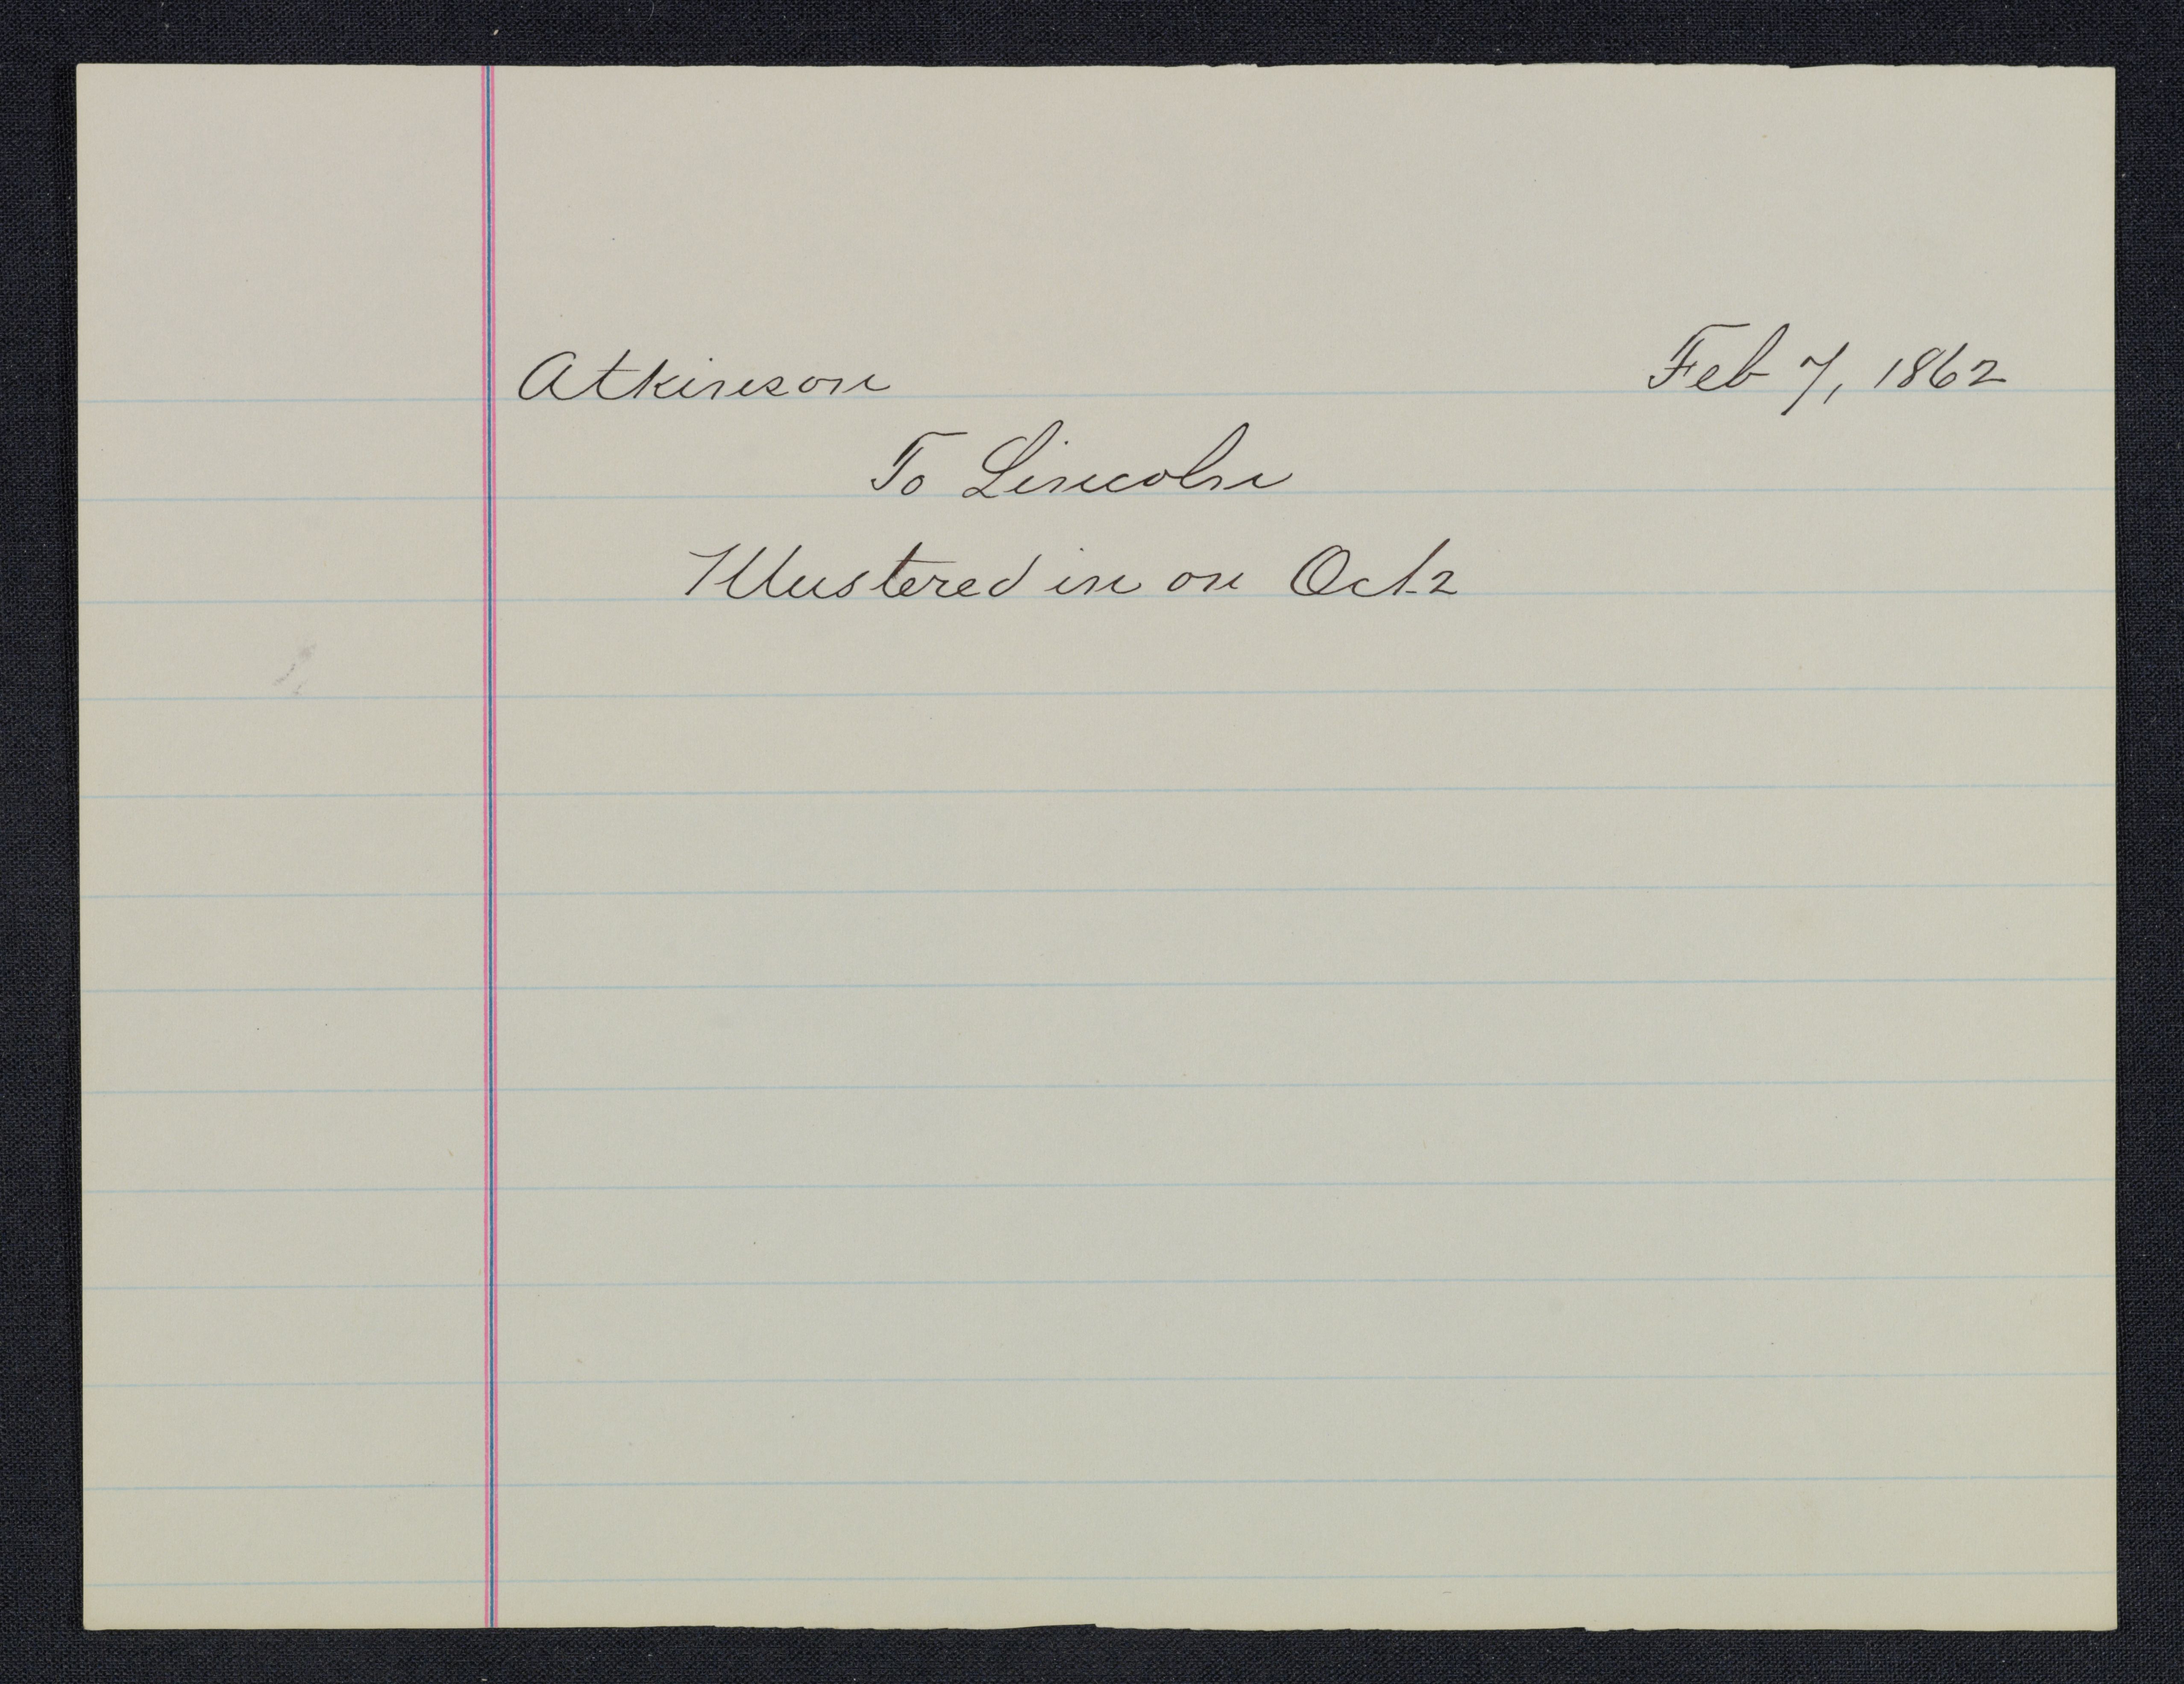 Atkinson Feb 7, 1862
To Lincoln
Mustered in on Oct 2